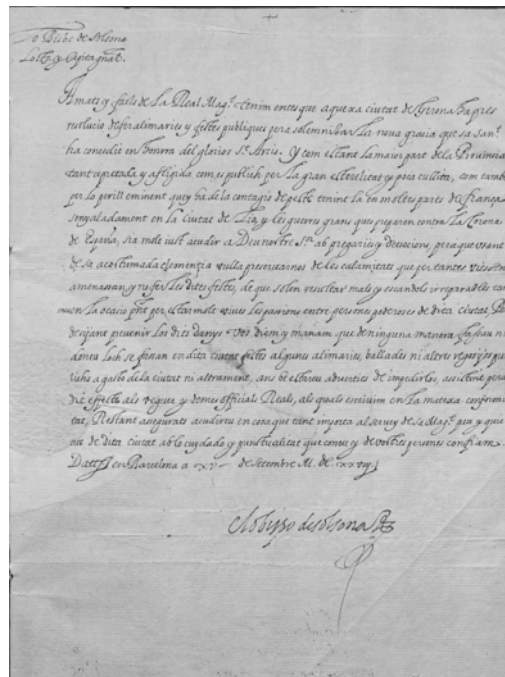 Lo Bisbe de Solsona
Loctᵗ y Capitaᵍⁿᵃˡ.
Amats y feels de La Real Magᵗ. tenim entes que aquexa ciutat de Gerona ha pres
resolucio de fer alimaries y festes publiques pera solemnizar La noua gracia que sa Sanᵗ.
ha concedit en honra del glorios Sᵗ. Narcis. Y com estant La maior part de La Prouincia
tant apretada y afligida com es publich per la gran esterilitat y poca cullita, com tambe
per lo perill eminent quey ha de la contagio de peste tenint la en moltes parts de frança
senyaladament en la ciutat de Lio, y les guerres grans ques preparen contra La Corona
de España, sia molt just acudir a Deu nostre Sʳ ab pregaries y deuocions, pera que usant
de sa acostumada clemenzia vulla preseruarnos de les calamitats que per tantes vies
amenaçan y no fer les dites festes, de que solen resultar mals y escandols irreparables
en La ocasio pñt per estar molt viues les passions entre persones poderoses de dita ciutat,
desijant preuenir los dits danys. Vos diem y manam que de ninguna manera
doneu Loch se fassan en dita ciutat festes algunes alimaries, ballades ni altres regosijos
a gastos de la ciutat ni altrament, ans be estareu aduertits de impedirlos, assistint pera
dit effecte als veguer y demes officials Reals, als quals escriuim en La mateixa conformi
tat, Restant assegurats acudireu en cosa que tant importa al seruey de sa Magᵗ. pau y quie
tut de dita ciutat ab lo cuydado y puntualitat que conue y de vostres persones confiam.
Datt. en Barcelona a xv de Setembre M. dc. xxviiij
el obispo de solsona